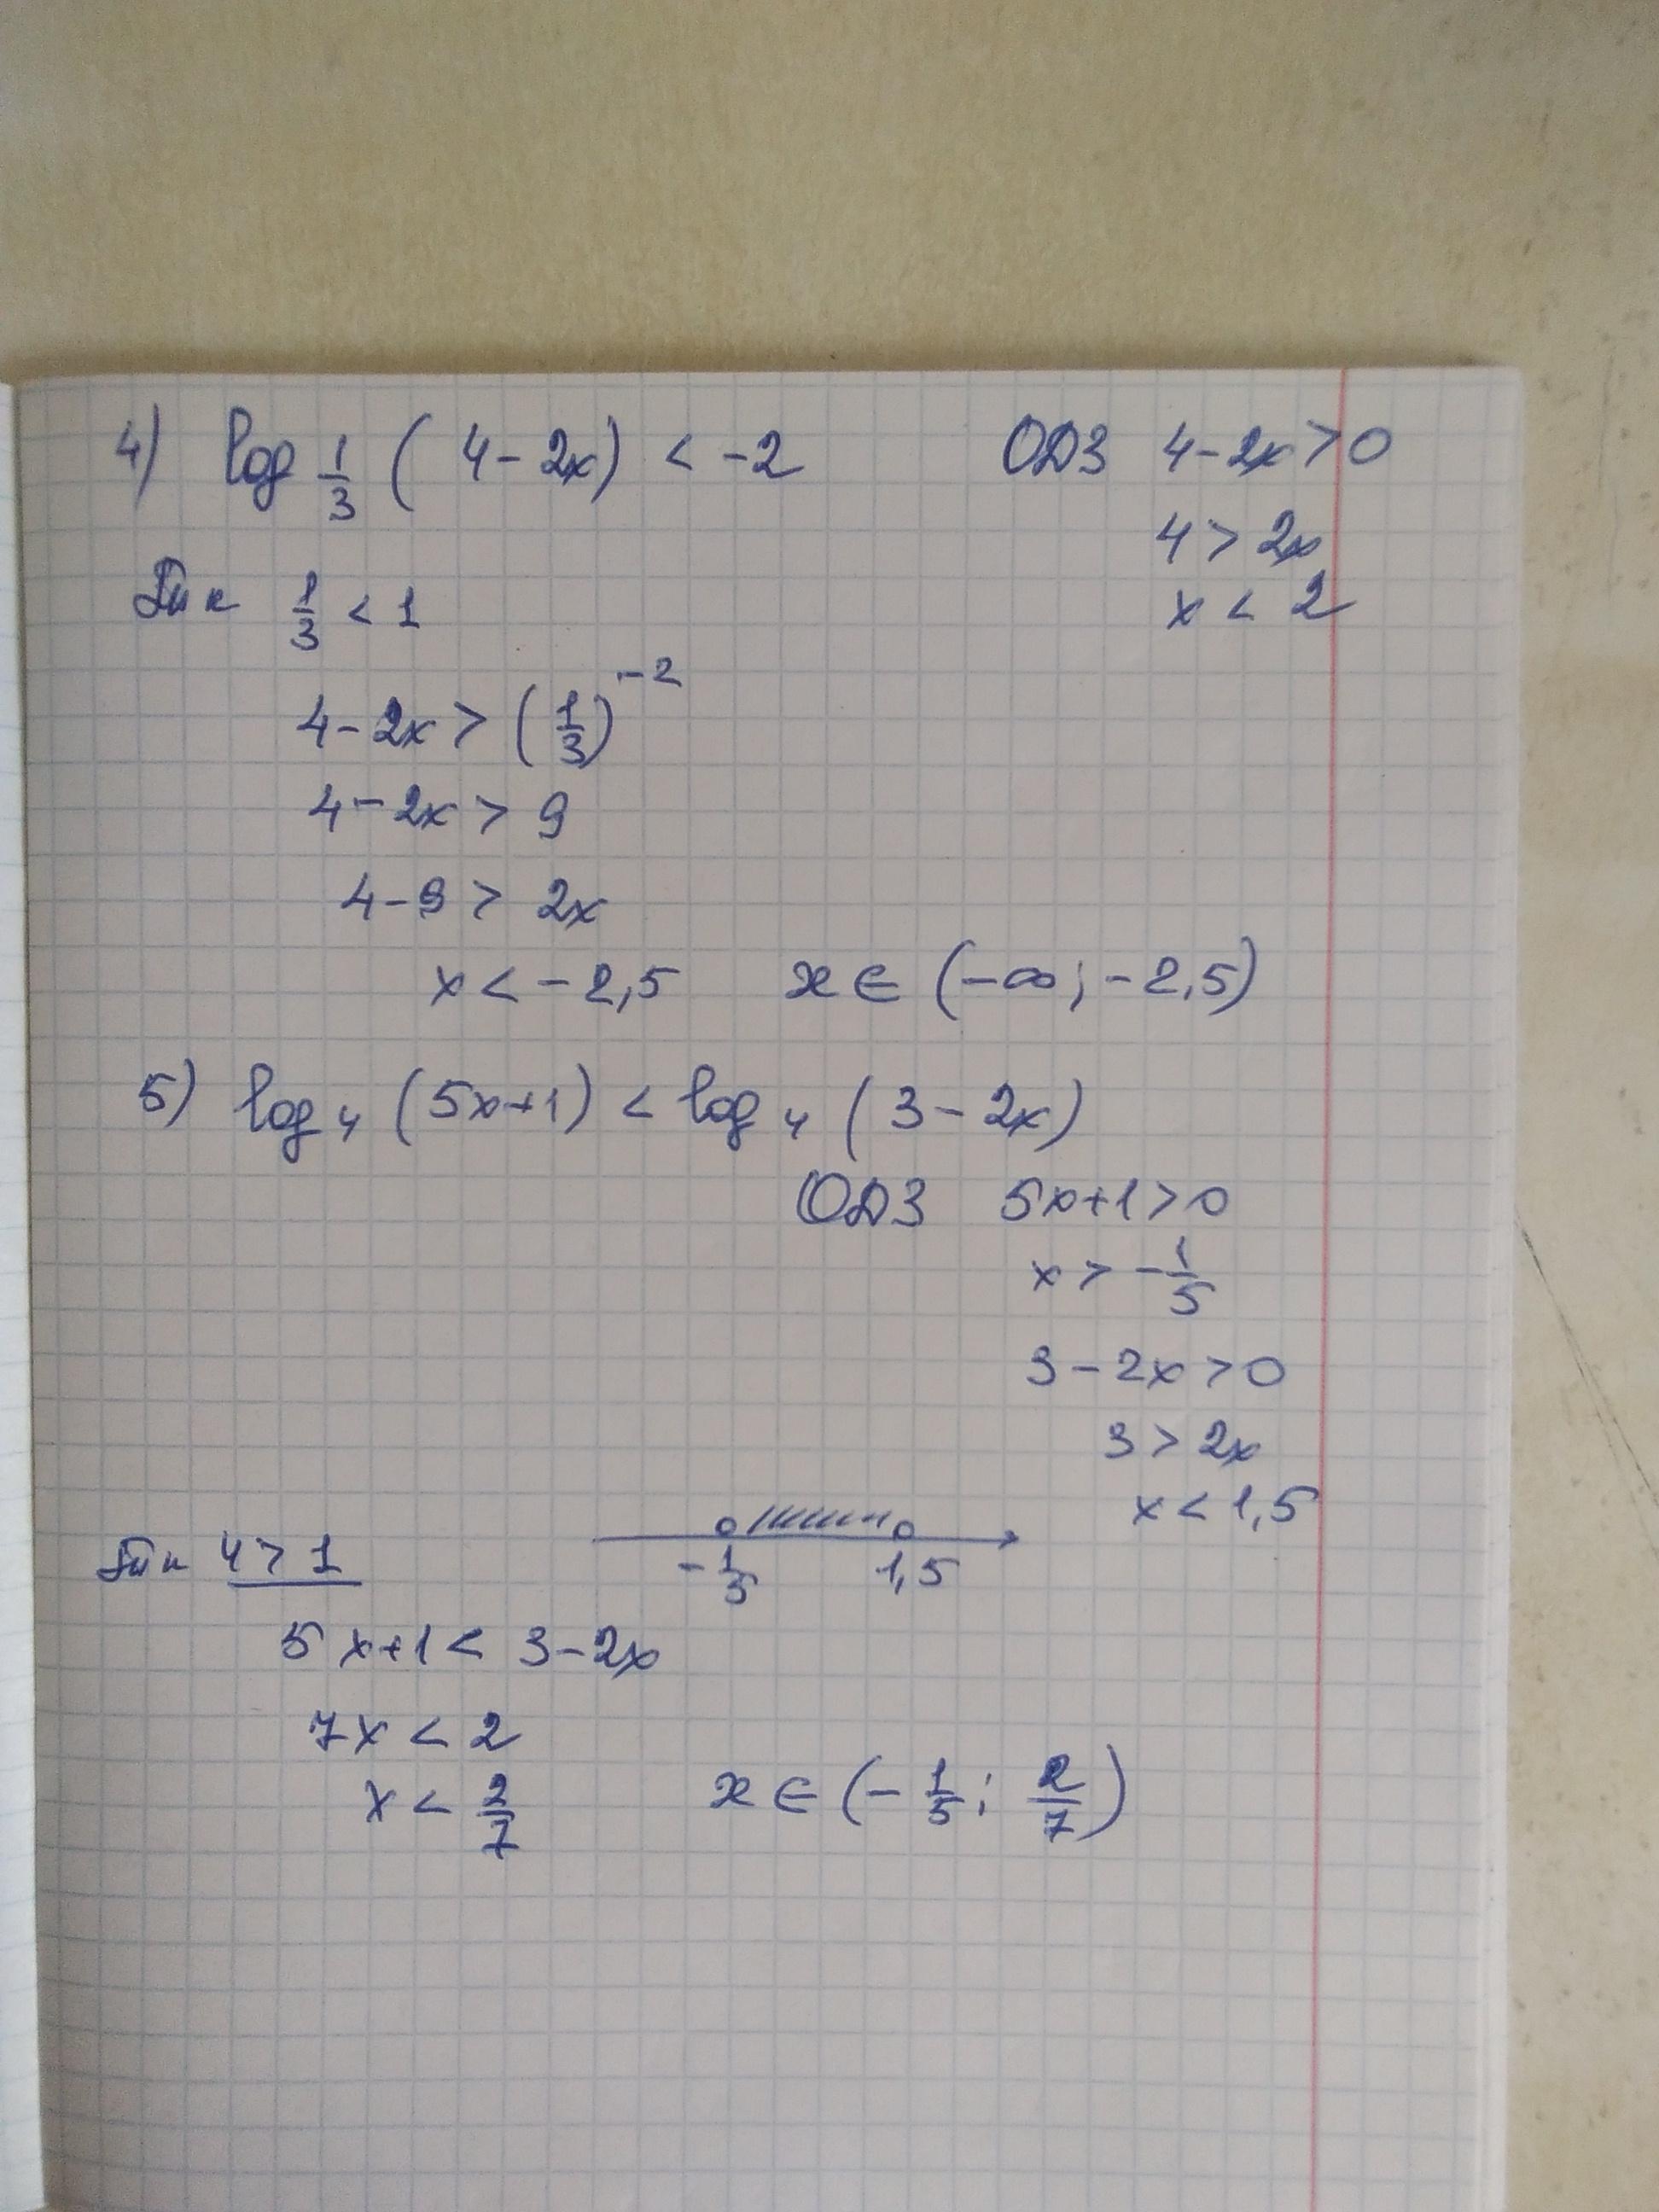 4) log 1/3 (4 - 2x) < -2 ОДЗ 4 - 2x > 0
4 > 2x
Тик 1/3 < 1 x < 2
4 - 2x > (1/3)^-2
4 - 2x > 9
4 - 9 > 2x
x < -2,5 x ∈ (-∞; -2,5)
5) log₄ (5x+1) < log₄ (3 - 2x)
ОДЗ 5x+1 > 0
x > -1/5
3 - 2x > 0
3 > 2x
x < 1,5
Тик 4 > 1 -1/5 1,5
5x+1 < 3 - 2x
7x < 2
x < 2/7 x ∈ (-1/5; 2/7)